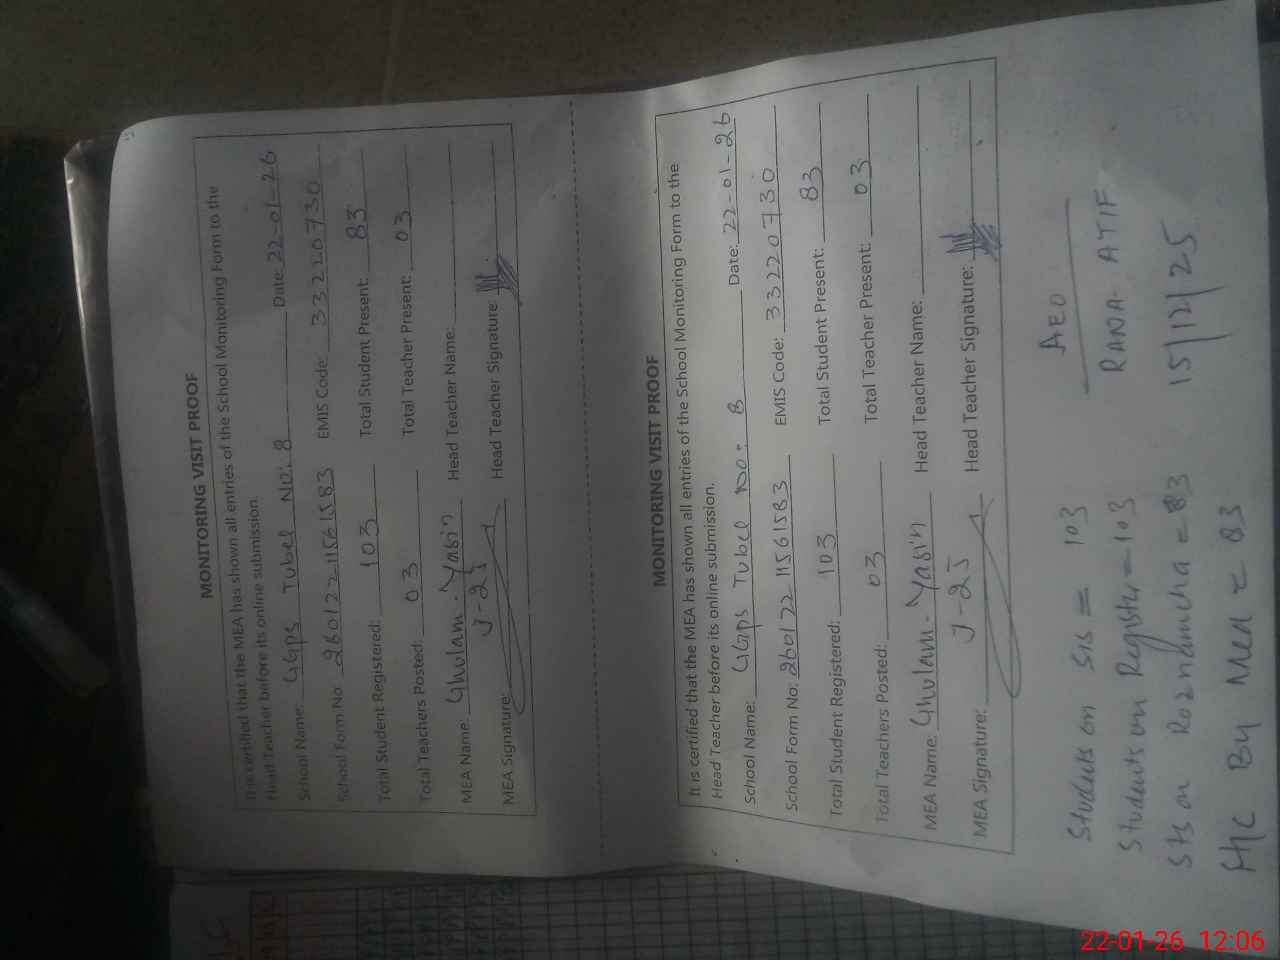 MONITORING VISIT PROOF
It is certified that the MEA has shown all entries of the School Monitoring Form to the
Head Teacher before its online submission.
School Name: GGPS Tubel No: 8 Date: 22-01-26
School Form No: 26012211561583 EMIS Code: 33220730
Total Student Registered: 103 Total Student Present: 83
Total Teachers Posted: 03 Total Teacher Present: 03
MEA Name: Ghulam. Yasin Head Teacher Name:
J-25
MEA Signature: Head Teacher Signature:
MONITORING VISIT PROOF
It is certified that the MEA has shown all entries of the School Monitoring Form to the
Head Teacher before its online submission.
School Name: GGPS Tubel No: 8 Date: 22-01-26
School Form No: 26012211561583 EMIS Code: 33220730
Total Student Registered: 103 Total Student Present: 83
Total Teachers Posted: 03 Total Teacher Present: 03
MEA Name: Ghulam. Yasin Head Teacher Name:
J-25
MEA Signature: Head Teacher Signature:
Students on SIS = 103
Students on Register = 103
Sts on Roznamcha = 83
H/C By Mea = 83
AEO
RANA ATIF
15/12/25
22-01-26 12:06